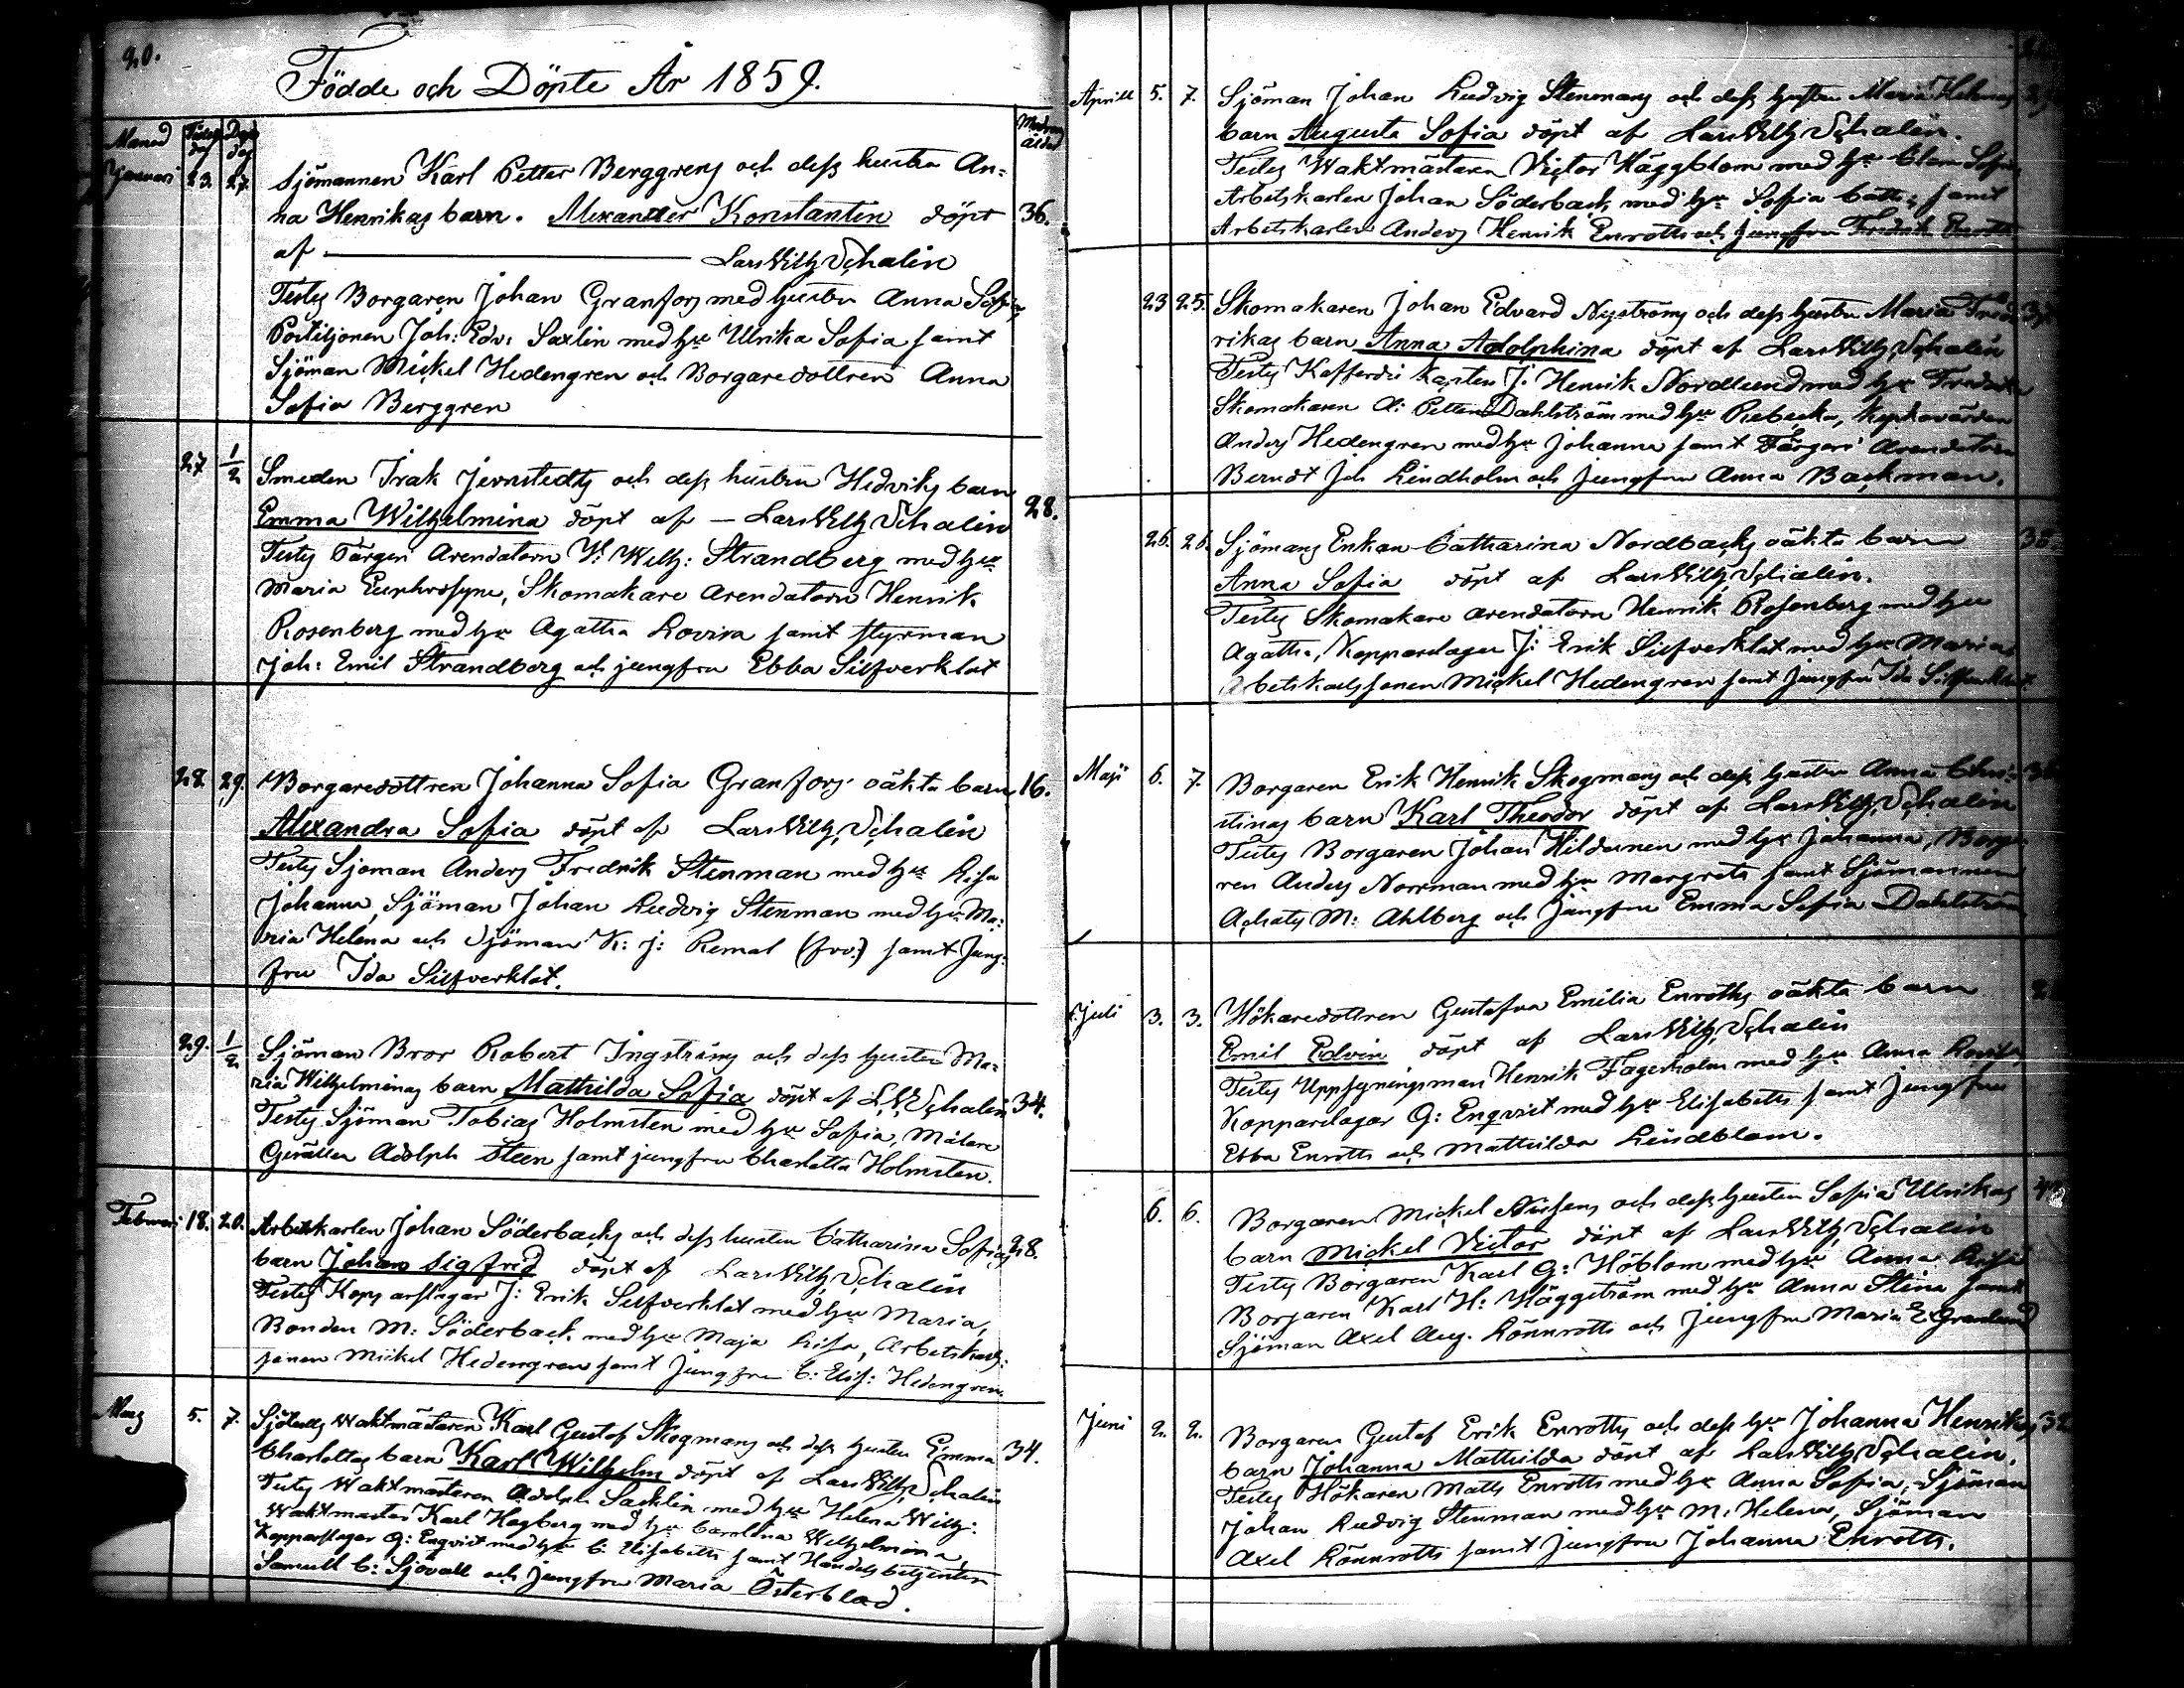 20.
Födde och Döpte År 1859.
Månad Födelse dag Dop dag Modrens ålder
Januari 23. 27. Sjömannen Karl Petter Berggrens och dess hustru An-
na Henrikas barn. Alexander Konstantin döpt 36.
af — Lars Wilh. Schalin
Testes Borgaren Johan Granfors med hustru Anna Sofia,
Postiljonen Joh: Edv: Saxlin med hu Ulrika Sofia samt
Sjöman Mickel Hedengren och Borgaredottren Anna
Sofia Berggren
27 1/2 Smeden Isak Jernstedts och dess hustru Hedviks barn
Emma Wilhelmina döpt af — Lars Wilh Schalin 28.
Testes Färgeri Arendatorn V: Wilh: Strandberg med hu
Maria Euphrosyne, Skomakare Arendatorn Henrik
Rosenberg med hu Agatha Lovisa samt styrman
Joh: Emil Strandberg och jungfru Ebba Silfverklot
28. 29. Borgaredottren Johanna Sofia Granfors oäkta barn 16.
Alexandra Sofia döpt af Lars Wilh. Schalin
Testes Sjöman Anders Fredrik Stenman med hu Lisa
Johanna, Sjöman Johan Ludvig Stenman med hu Ma-
ria Helena och Sjöman K: J: Remal samt Jung-
fru Ida Silfverklot.
29. 1/2 Sjöman Bror Robert Ingströms och dess hustru Ma-
ria Wilhelminas barn Mathilda Sofia döpt af L.W. Schalin 34.
Testes Sjöman Tobias Holmsten med hu Sofia, Målare
Gesällen Adolph Steen samt jungfru Charlotta Holmsten.
Februari 18. 20. Arbetskarlen Johan Söderbacks och dess hustru Catharina Sofias 28.
barn Johan Sigfrid döpt af Lars Wilh. Schalin
Testes Kopparslagar J: Erik Silfverklot med hu Maria,
Bonden M: Söderback med hu Maja Lisa, Arbetskarls-
sonen Mickel Hedengren samt Jungfru C: Elis: Hedengren.
Mars 5. 7. Sjötulls Waktmästaren Karl Gustaf Skogmans och dess hustru Emma 34.
Charlottas barn Karl Wilhelm döpt af Lars Wilh. Schalin
Testes Waktmästaren Adolph Sacklin med hu Helena Wilh:
Waktmäster Karl Hagberg med hu Carolina Wilhelmina,
Kopparslagar G: Enqvist med hu C: Elisabeth samt Handelsbetjenten
Samuell C: Sjövall och Jungfru Maria Österblad.
Aprill 5. 7. Sjöman Johan Ludvig Stenmans och dess hustru Maria Helenas
barn Augusta Sofia döpt af Lars Wilh Schalin.
Testes Waktmästaren Victor Häggblom med hu Clara Sofia,
Arbetskarlen Johan Söderback med hu Sofia Cath: samt
Arbetskarlen Anders Henrik Enroth och Jungfru Fredrik Enroth.
23 25. Skomakaren Johan Edvard Nyströms och dess hustru Maria Fred-
rikas barn Anna Adolphina döpt af Lars Wilh Schalin
Testes Kofferdi Kapten J: Henrik Nordlund med hu Fredrika
Skomakaren A: Petter Dahlström med hu Rebecka,
Anders Hedengren med hu Johanna samt Färgeri Arendatorn
Berndt Joh Lindholm och Jungfru Anna Backman.
26. 26. Sjömans Enkan Catharina Nordbacks oäkta barn
Anna Sofia döpt af Lars Wilh Schalin.
Testes Skomakare arendatorn Henrik Rosenberg med hu
Agatha, Kopparslagar J: Erik Silfverklot med hu Maria
Arbetskarlssonen Mickel Hedengren samt Jungfru Ida Silfverklot
Maji 6. 7. Borgaren Erik Henrik Skogmans och dess hustru Anna Chri-
stinas barn Karl Theodor döpt af Lars Wilh. Schalin
Testes Borgaren Johan Hildenen med hu Johanna, Borga-
ren Anders Norrman med hu Margreta samt Sjömannen
Achates M: Ahlberg och Jungfru Emma Sofia Dahlström
Juli 3. 3. Hökaredottren Gustafva Emilia Enroths oäkta barn
Emil Edvin döpt af Lars Wilh. Schalin
Testes Uppsyningsman Henrik Fagerholm med hu Anna Lovisa,
Kopparslagar G: Enqvist med hu Elisabeth samt jungfru
Ebba Enroth och Mathilda Lindblom.
6. 6. Borgaren Mickel Nissens och dess hustru Sofia Ulrikas
barn Mickel Victor döpt af Lars Wilh Schalin
Testes Borgaren Karl G: Höblom med hu Anna Lisa
Borgaren Karl H: Häggström med hu Anna Stina samt
Sjöman Axel Aug. Lönnroth och Jungfru Maria E. Granlund
Juni 2. 2. Borgaren Gustaf Erik Enroths och dess hu Johanna Henrikas 32
barn Johanna Mathilda döpt af Lars Wilh Schalin.
Testes Hökaren Matts Enroth med hu Anna Sofia, Sjöman
Johan Ludvig Stenman med hu M: Helena, Sjöman
Axel Lönnroth samt jungfru Johanna Enroth.